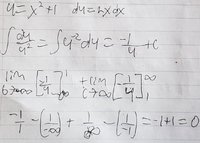 u = x² + 1   du = 2x dx
∫ du/u² = ∫ u⁻² du = -1/u + c
lim b→∞ [-1/u] ¹ + lim c→∞ [-1/u]₁^∞
-1/1 - (1/-∞) + 1/∞ - (1/-1) = -1 + 1 = 0